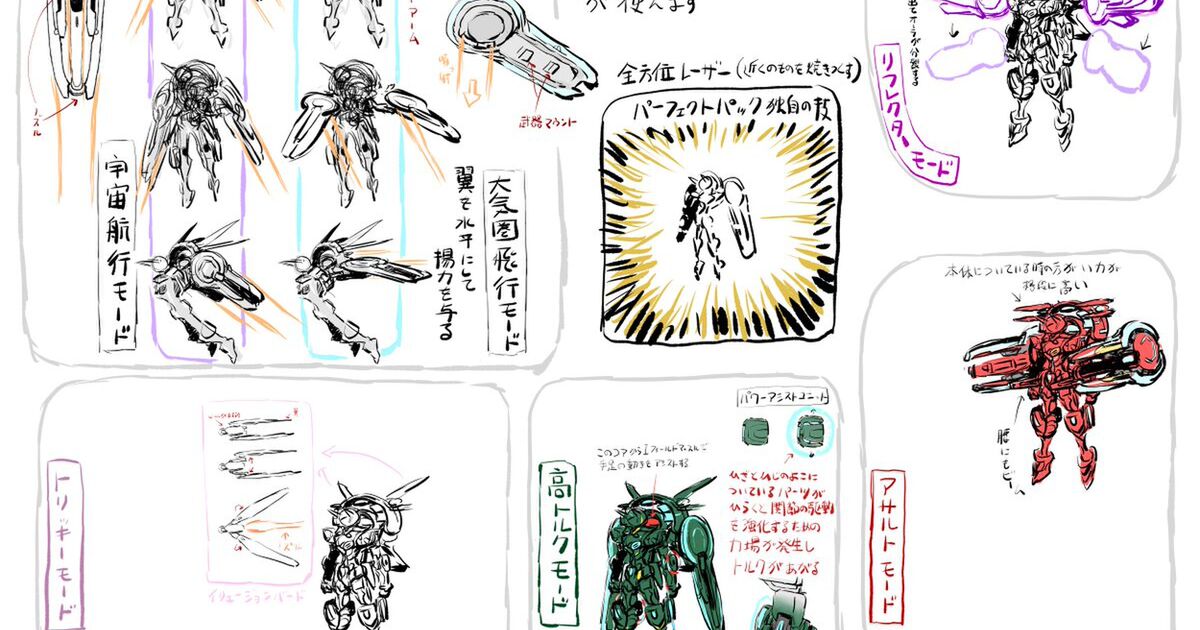 が使えます
アーム
ノズル
武器マウント
宇宙航行モード
大気圏飛行モード
翼を水平にして
揚力を与る
全方位レーザー(近くのものを焼きつくす)
パーフェクトパック独自の技
リフレクターモード
本体についている時の方が火力が
格段に高い
腰にもビーム
アサルトモード
トリッキーモード
ノズル
イリュージョンバード
高トルクモード
パワーアシストユニット
このコアからIフィールドマッスルで
手足の動きをアシストする
ひざとひじのよこに
ついているパーツが
ひらくと関節の駆動
を強化するための
力場が発生し
トルクがあがる